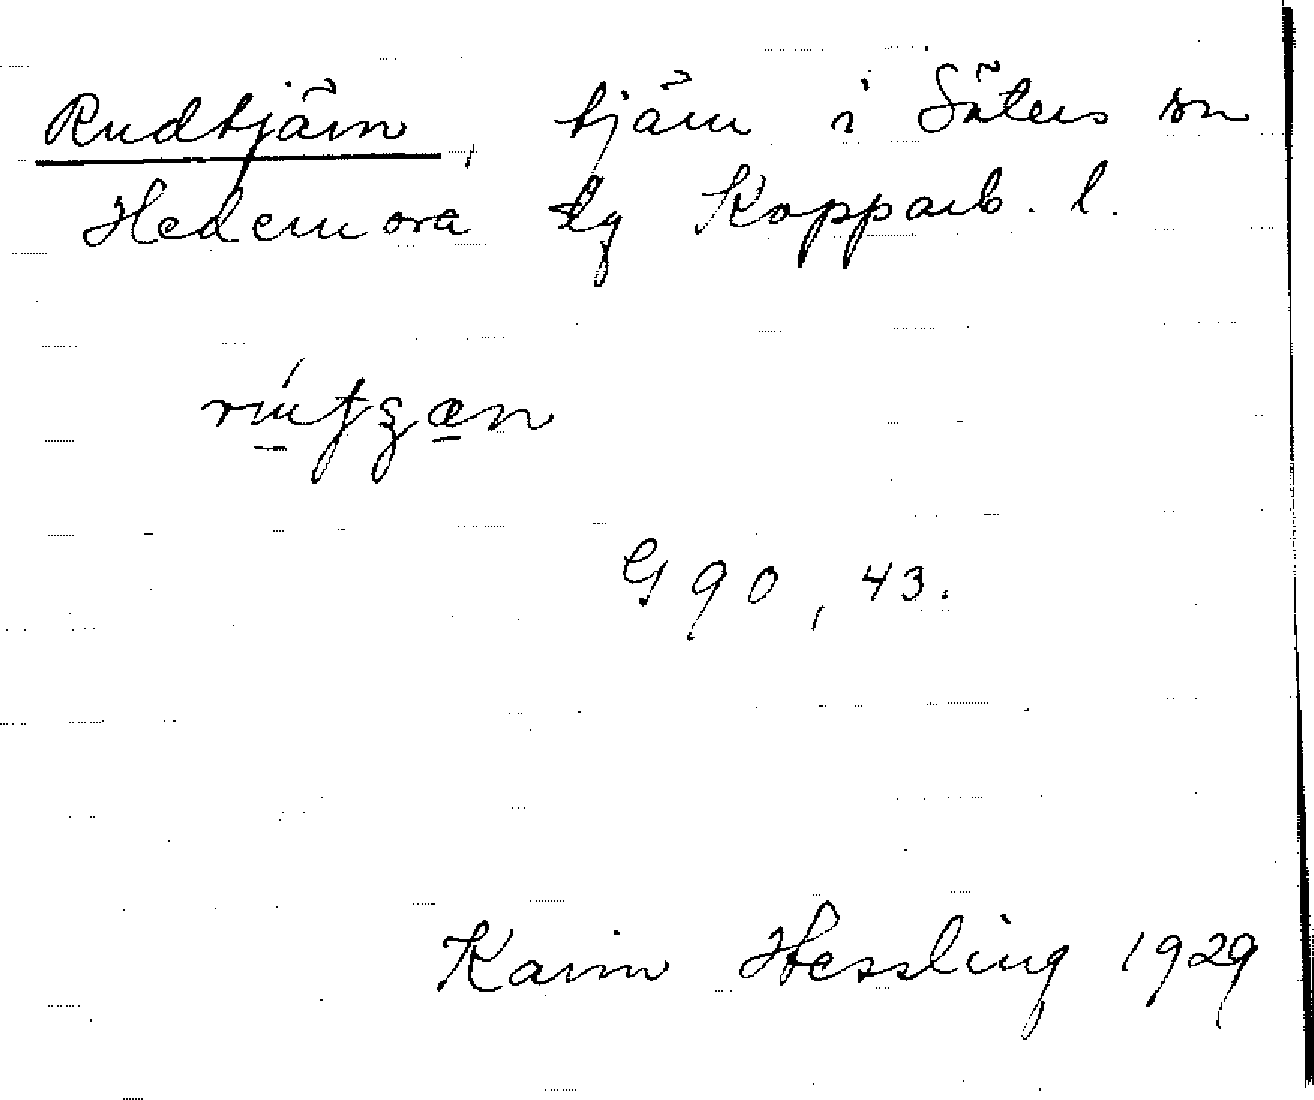 Rudtjärn, tjärn i Säters sn
Hedemora tg Kopparb. l.
G 90, 43.
Karin Hessling 1929